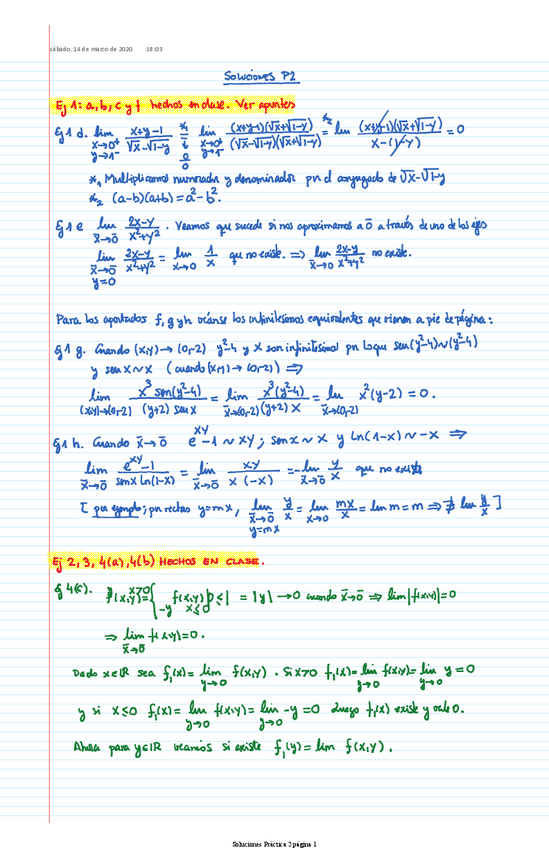 sábado, 14 de marzo de 2020 18:03
Soluciones P2
Ej 1: a, b, c y f hechos en clase. Ver apuntes
Ej 1 d. lim x→0⁺ y→1⁻ (x+y-1)/(√x-√1-y) =*₁ 0/0 lim x→0⁺ y→1⁻ (x+y-1)(√x+√1-y)/(√x-√1-y)(√x+√1-y) =*₂ lim (x+y-1)(√x+√1-y)/(x-(1-y)) = 0
*₁ Multiplicamos numerador y denominador por el conjugado de √x-√1-y
*₂ (a-b)(a+b) = a²-b².
Ej 1 e lim x̄→0̄ (2x-y)/(x²+y²). Veamos que sucede si nos aproximamos a 0̄ a través de uno de los ejes
lim x̄→0̄ y=0 (2x-y)/(x²+y²) = lim x→0 1/x que no existe. ⇒ lim x̄→0 (2x-y)/(x²+y²) no existe.
Para los apartados f, g y h, véanse los infinitésimos equivalentes que vienen a pie de página:
Ej 1 g. Cuando (x,y)→(0,-2) y²-4 y x son infinitésimos por lo que sen(y²-4)~(y²-4)
y sen x ~ x (cuando (x,y)→(0,-2)) ⇒
lim (x,y)→(0,-2) x³ sen(y²-4)/(y+2) sen x = lim x̄→(0,-2) x³(y²-4)/(y+2) x = lim x̄→(0,-2) x²(y-2) = 0.
Ej 1 h. Cuando x̄→0̄ e^xy-1 ~ xy; sen x ~ x y ln(1-x) ~ -x ⇒
lim x̄→0̄ (e^xy-1)/(sen x ln(1-x)) = lim x̄→0̄ xy/(x(-x)) = -lim x̄→0̄ y/x que no existe
[por ejemplo; por rectas y=mx, lim x̄→0̄ y=mx y/x = lim x→0 mx/x = lim m = m ⇒ ∄ lim y/x]
Ej 2, 3, 4(a), 4(b) HECHOS EN CLASE.
Ej 4(c). f(x,y)={ x>0 -y x≤0 f(x,y) 0≤| = |y| →0 cuando x̄→0̄ ⇒ lim|f(x,y)|=0
⇒ lim x̄→0̄ f(x,y)=0.
Dado x∈ℝ sea f₁(x)= lim y→0 f(x,y). Si x>0 f₁(x)= lim y→0 f(x,y)= lim y→0 y = 0
y si x≤0 f₁(x)= lim y→0 f(x,y)= lim y→0 -y = 0 Luego f₁(x) existe y vale 0.
Ahora para y∈ℝ veamos si existe f₁(y)= lim f(x,y).
Soluciones Práctica 2 página 1